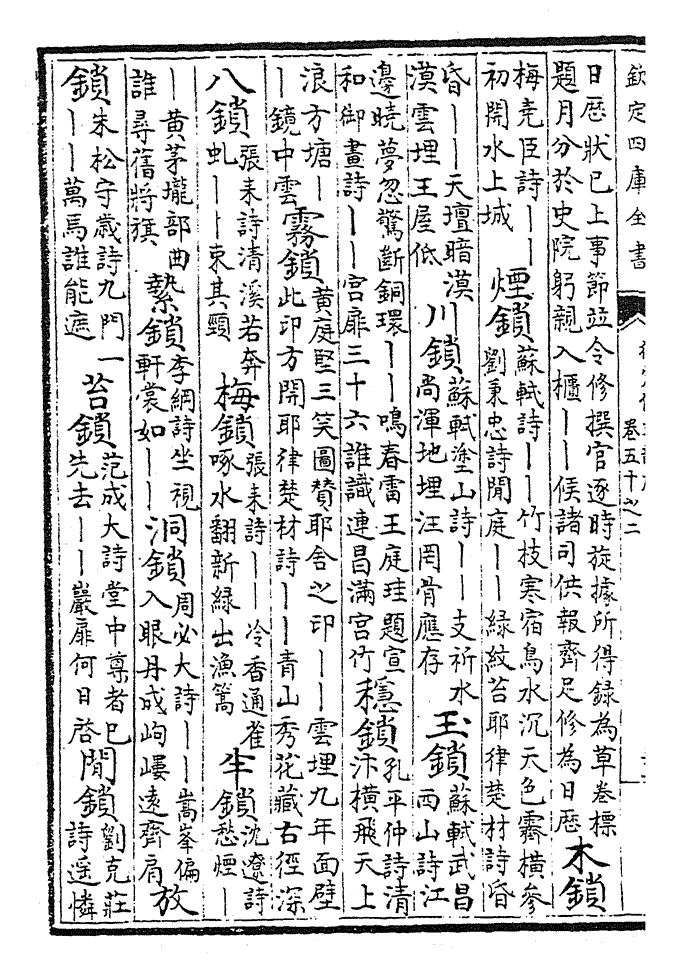 欽定四庫全書
卷五十之二
日厯狀已上事節並令修撰官逐時旋據所得録為草卷標題月分於史院躬親入櫃——候諸司供報齊足修為日厯木鎖
梅尭臣詩——初開水上城煙鎖蘇軾詩——竹枝寒宿鳥水沉天色霽橫參劉秉忠詩閒庭——緑紋苔耶律楚材詩昏
昏——天壇暗漠漠雲埋王屋低川鎖蘇軾塗山詩——支祈水尚渾地埋汪罔骨應存玉鎖蘇軾武昌西山詩江
邊曉夢忽驚斷銅環——鳴春雷王庭珪題宣和御畫詩——宫扉三十六誰識連昌滿宫竹穩鎖孔平仲詩清汴橫飛天上
浪方塘——鏡中雲霧鎖黄庭堅三笑圖賛耶舍之印——雲埋九年面壁此印方開耶律楚材詩——青山秀花藏右徑深
八鎖張耒詩清溪若奔虬——束其頸梅鎖張耒詩——冷香通雀啄水翻新緑出漁篙牢鎖沈遼詩愁煙—
—黄茅壠部曲誰尋舊將旗縶鎖李綱詩坐視軒裳如——洞鎖周必大詩——嵩峯偏入眼丹成岣嶁遠齊肩放
鎖朱松守歳詩九門一——萬馬誰能遮苔鎖范成大詩堂中尊者已先去——巖扉何日啓閒鎖劉克莊詩遥憐